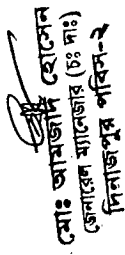 মোঃ আমজাদ হোসেন
জেনারেল ম্যানেজার (চঃ দাঃ)
দিনাজপুর পবিস-২